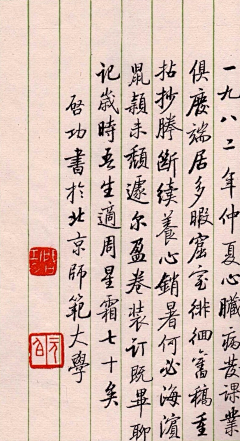 一九八二年仲夏心臟病發課業
俱廢端居多暇窟室徘徊舊稿重
拈抄勝斷續養心銷暑何必海濱
鼠穎未頹遽尔盈卷裝订既畢聊
记歲時吾生適周星霜七十矣
啓功書於北京師範大學
啓功
元白